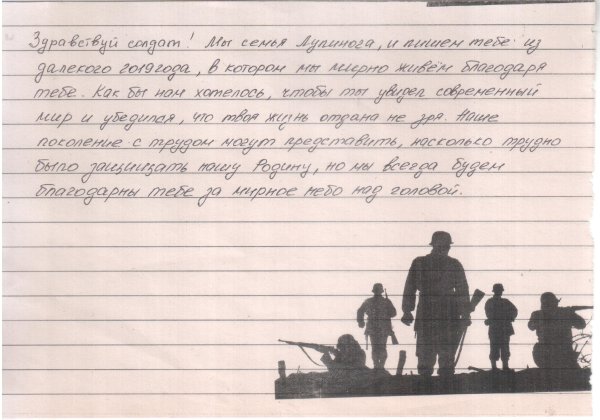 Здравствуй солдат! Мы семья Лупинога, и пишем тебе из
далекого 2019 года, в котором мы мирно живём благодаря
тебе. Как бы нам хотелось, чтобы ты увидел современный
мир и убедился, что твоя жизнь отдана не зря. Наше
поколение с трудом могут представить, насколько трудно
было защищать нашу Родину, но мы всегда будем
благодарны тебе за мирное небо над головой.